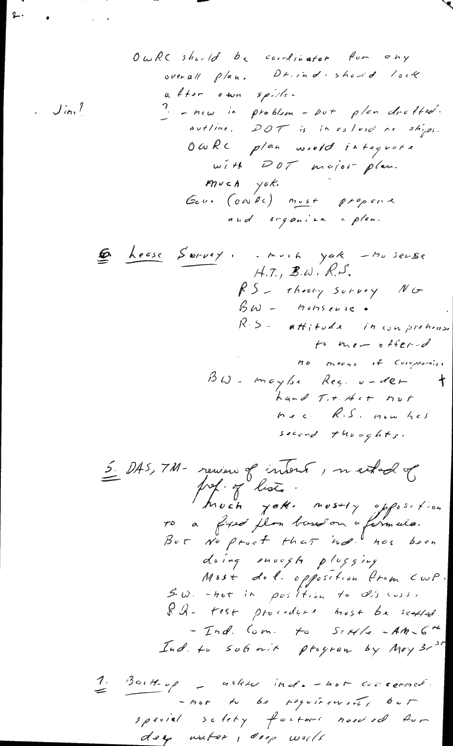 2.
OWRC should be coordinator for any
overall plan. Dr. ind. should look
after own spills.
Jim? ? - new in problem - but plan drafted.
outline. DOT is involved re ships.
OWRC plan would integrate
with DOT major plan.
Much yak.
Gov. (OWRC) must prepare
and organize a plan.
6 Lease Survey. - much yak - no sense
H.T., B.W. R.S.
RS - theory survey NG
BW - nonsense.
R.S. attitude incomprehensi
to me offered
no means of compromise
BW - maybe Reg. under
hand Act not
nec. R.S. now has
second thoughts.
5. DAS, TM - review of intent, method of
prep. of lists.
Much yak. mostly opposition
to a fixed plan based on a formula.
But No proof that ind. has been
doing enough plugging
Most opposition from CWP.
S.W. - not in position to discuss.
test procedure must be settled.
- Ind. Com. to settle - AM - 6th
Ind. to submit program by May 31st
7. Back-up - asked ind. - not concerned.
- not to be requirement, but
special safety factors needed for
deep water, deep wells